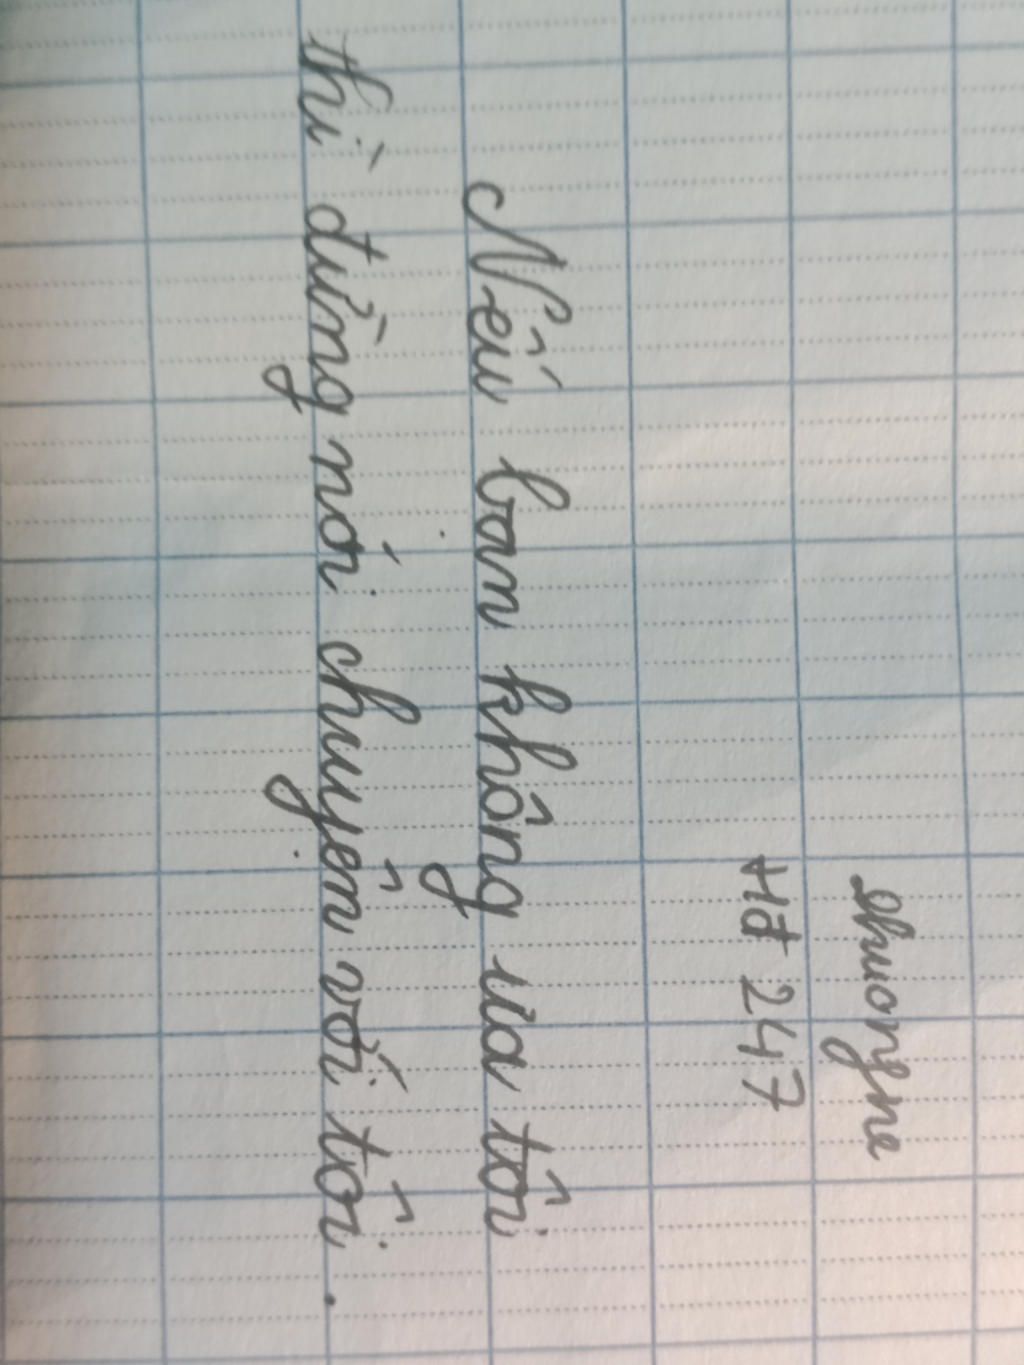 HĐ 247
Nếu bạn không ưa tôi
thì đừng nói chuyện với tôi.